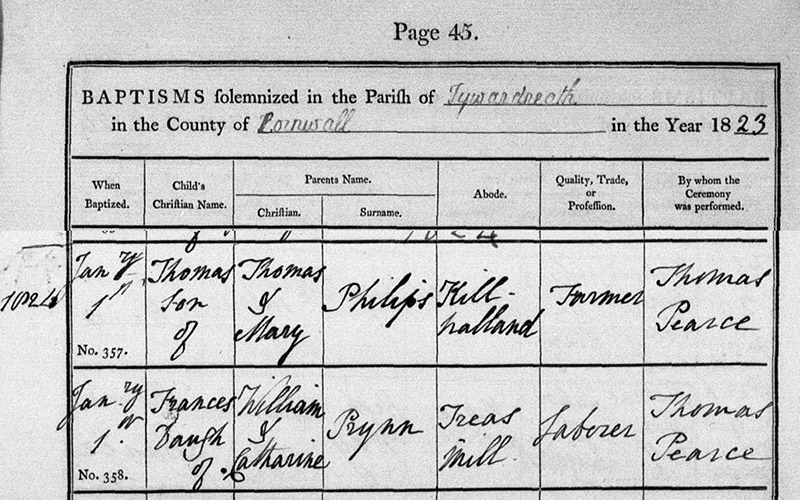 Page 45.
BAPTISMS solemnized in the Parish of Tywardreath
in the County of Cornwall in the Year 1823
When Baptized.
Child's Christian Name.
Parents Name.
Christian.
Surname.
Abode.
Quality, Trade, or Profession.
By whom the Ceremony was performed.
1824
1824
Jany Thomas Thomas Philips Kill- Farmer Thomas
1st Son & halland Pearce
of Mary
No. 357.
Janry Frances William Prynn Treas Laborer Thomas
1st Daugh & Mill Pearce
of Catharine
No. 358.